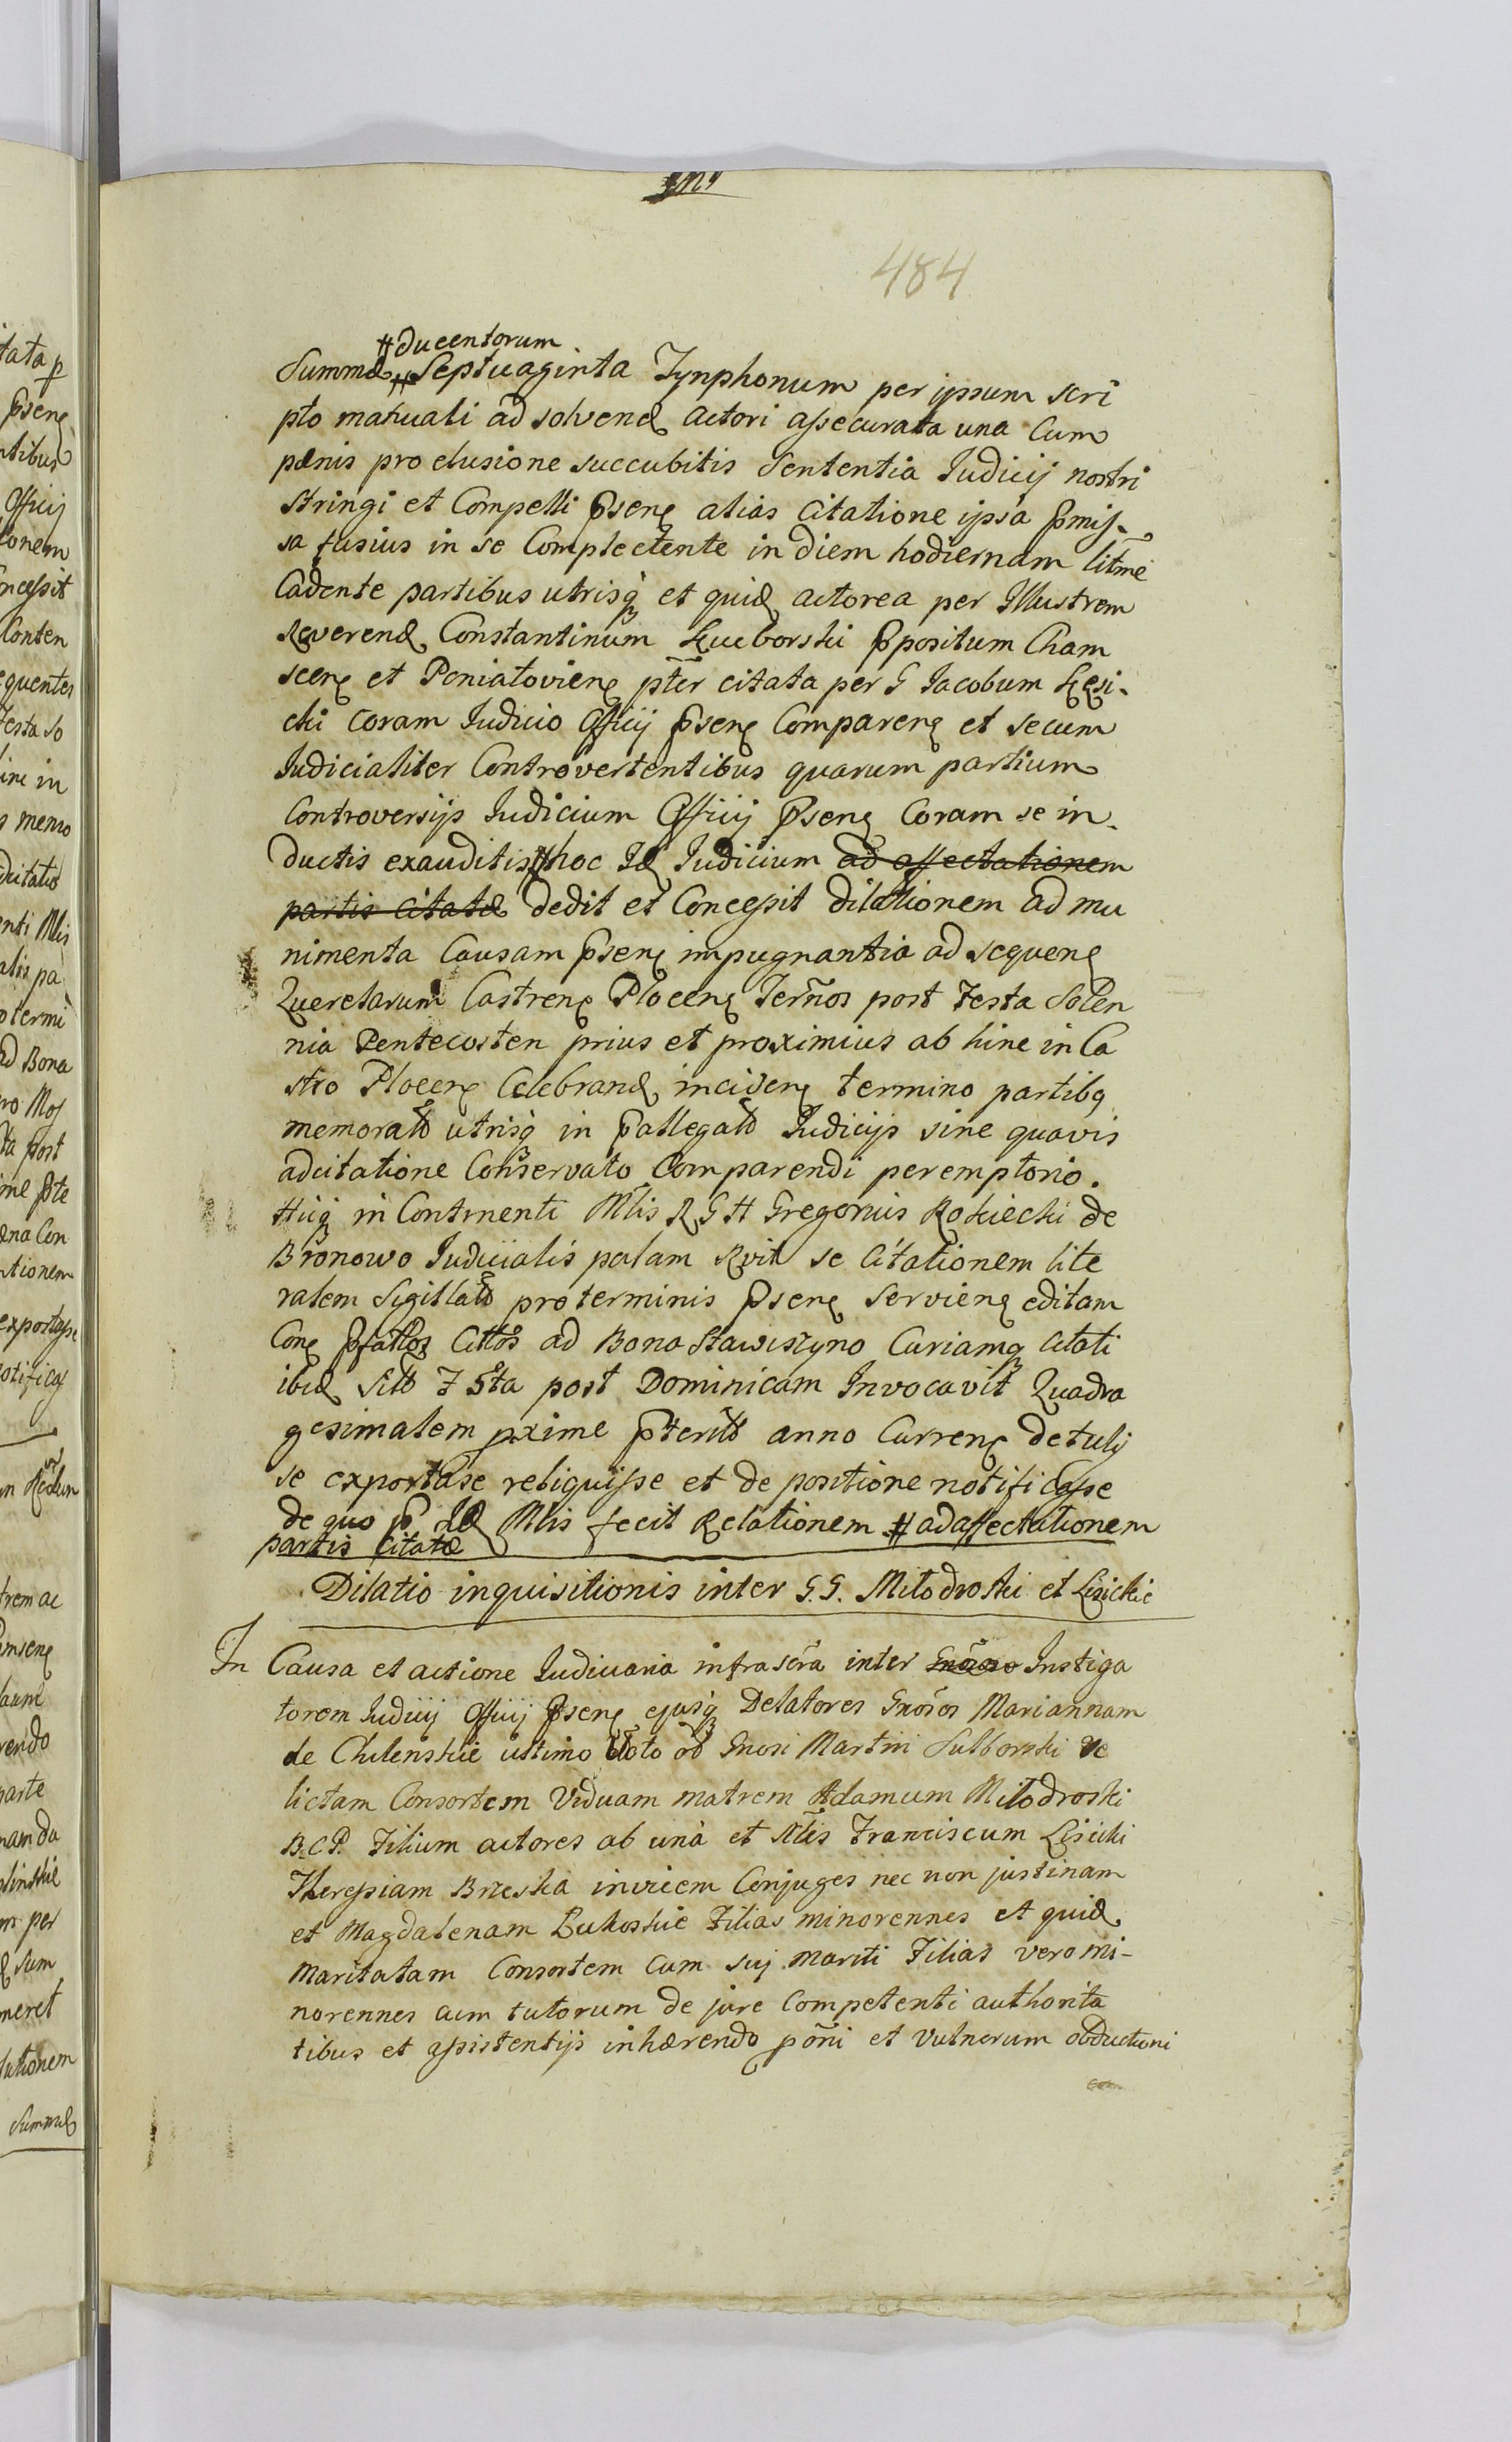 484
# ducentorum
Summæ # Septuaginta Tynphonum per ipsum scri
pto manuali ad solvend actori assecurata una Cum
pænis pro elusione succubitis Sententia Iudicij nostri
stringi et Compelli Psens alias Citatione ipsa pmis-
sa fusius in se Complectente in diem hodiernam litme
Cadente partibus utrisq et quid actorea per Illustrem
Reverend Constantinum Ppositum Cham
scen et Poniatoviens pter citata per G Iacobum
cki coram Iudicio Officij Psens Comparens et secum
Iudicialiter Controvertentibus quarum partium
Controversijs Iudicium Officij Psens Coram se in-
ductis exauditis # hoc Id Iudicium ad affectationem
partis citatæ dedit et Concessit dilationem ad mu
nimenta Causam Psens impugnantia ad sequens
Querelarum Castrens Plocens Termos post Festa Solen
nia Pentecosten prius et proximius ab hinc in Ca
stro Plocens Celebrand incidens termino partibq
memorato utrisq in Pallegato Iudicijs sine quavis
adcitatione Conservato Comparendi peremptorio.
Hicq in Continenti Mlis R G H Gregorius Rokicki de
Bronowo Iudicialis palam Rvit se Citationem lite
ralem Sigillato pro terminis Psens Serviens editam
Con Pfattos Cittos ad Bona Stawiszyno Curiamq Citati
ibid Sitto F 5ta post Dominicam Invocavit Quadra
gesimalem pxime Pterito anno Currens detulj
se exportase reliquisse et de positione notificasse
de quo P Id Mlis fecit Relationem # ad affectationem
partis Citatæ
Dilatio inquisitionis inter G.G. Milodroski et Lisickie
In Causa et actione Iudiciaria infrascra inter Instiga
torem Iudicij Officij Psens ejusq Delatores Gnosos Mariannam
de Chlenskie ultimo Voto ob Gnosi Martini Sulborski Re
lictam Consortem Viduam matrem Adamum Milodroski
B. C P. Filium actores ab una et Gnos Franciscum Lisicki
Theressiam Brzeska invicem Conjuges nec non justinam
et Magdalenam Bukoskie Filias minorennes et quid
Maritatam Consortem Cum sui Mariti Filias vero mi-
norennes cum tutorum de jure Competenti authorita
tibus et assistentijs inhærendo poni et Vulnerum obductioni